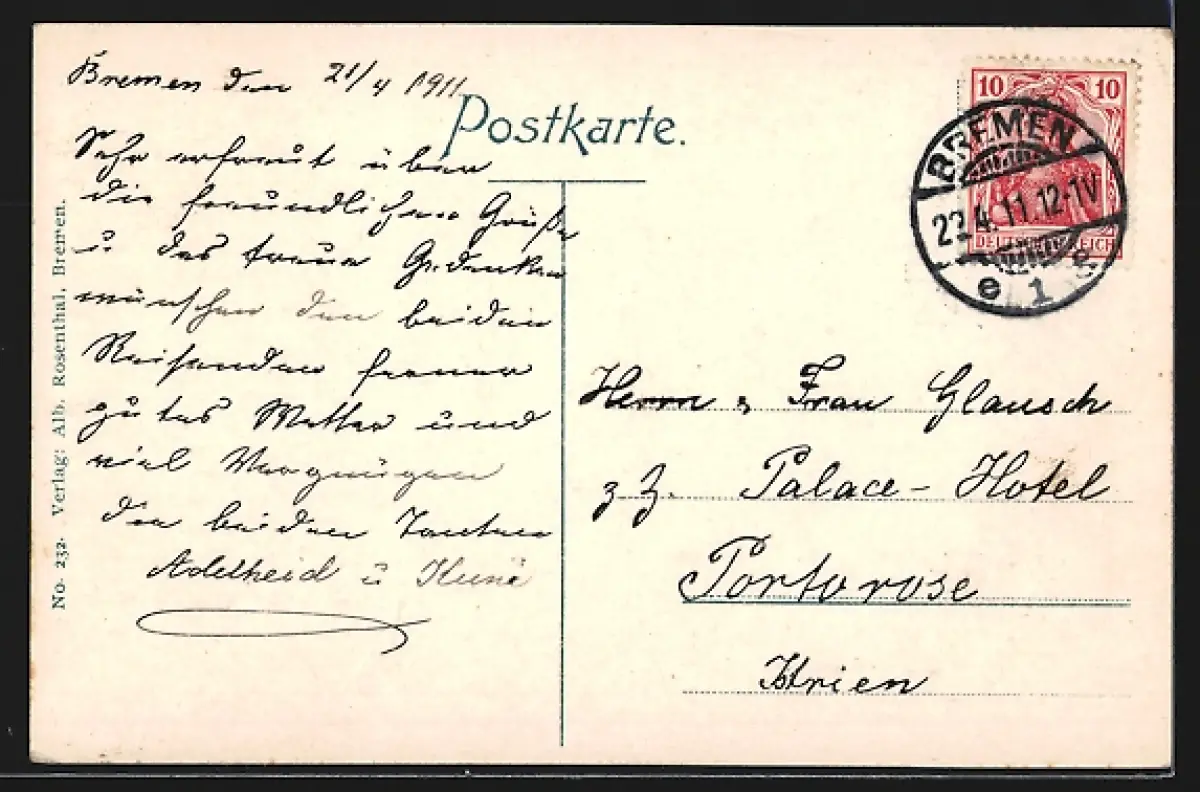 Bremen den 21/4 1911
Postkarte.
Sehr erfreut über
die freundlichen Grüße
u das treue Gedenken
wünschen den beiden
Reisenden ferner
gutes Wetter und
viel Vergnügen
die beiden Tanten
Adelheid u
No. 232. Verlag: Alb. Rosenthal, Bremen.
10 10
DEUTSCHES REICH
BREMEN
22.4.11.12-1V
e 1 e
Herrn u Frau Glausch
z. Z. Palace-Hotel
Portorose
Istrien